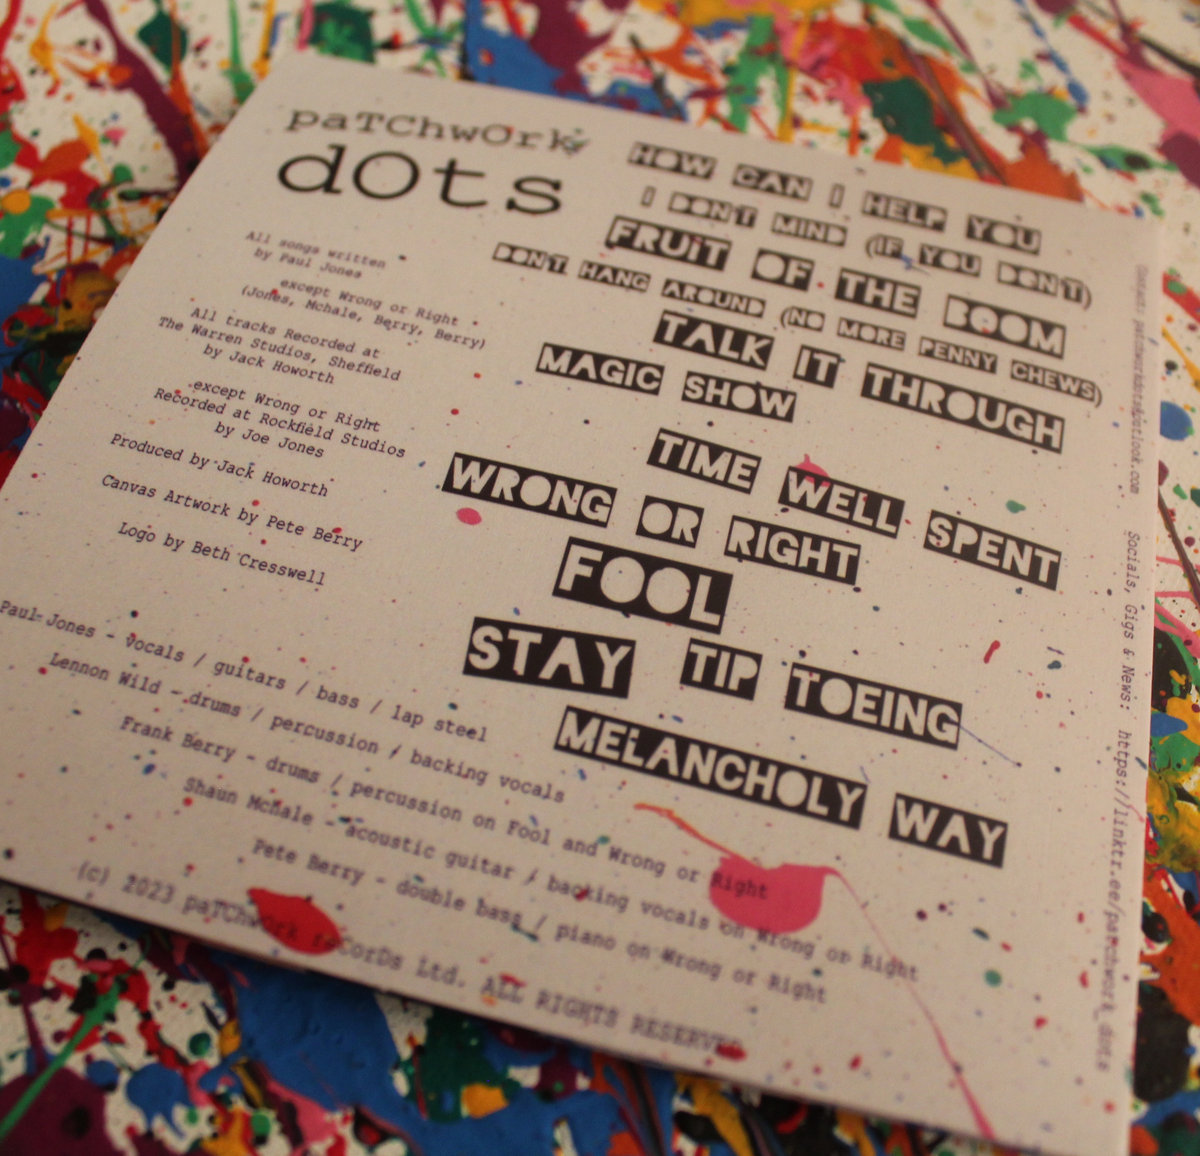 paTChwOrk
dOts
All songs written
by Paul Jones
except Wrong or Right
(Jones, Mchale, Berry, Berry)
All tracks Recorded at
The Warren Studios, Sheffield
by Jack Howorth
except Wrong or Right
Recorded at Rockfield Studios
by Joe Jones
Produced by Jack Howorth
Canvas Artwork by Pete Berry
Logo by Beth Cresswell
HOW CAN I HELP YOU
I DON'T MIND (IF YOU DON'T)
FRUIT OF THE BOOM
DON'T HANG AROUND (NO MORE PENNY CHEWS)
TALK IT THROUGH
MAGIC SHOW
TIME WELL SPENT
WRONG OR RIGHT
FOOL
STAY
TIP TOEING
MELANCHOLY WAY
Paul Jones - vocals / guitars / bass / lap steel
Lennon Wild - drums / percussion / backing vocals
Frank Berry - drums / percussion on Fool and Wrong or Right
Shaun McHale - acoustic guitar / backing vocals on Wrong or Right
Pete Berry - double bass / piano on Wrong or Right
(c) 2023 paTChwOrk reCorDs Ltd. ALL RIGHTS RESERVED
Contact: patchworkdots@outlook.com
Socials, Gigs & News: https://linktr.ee/patchwork_dots